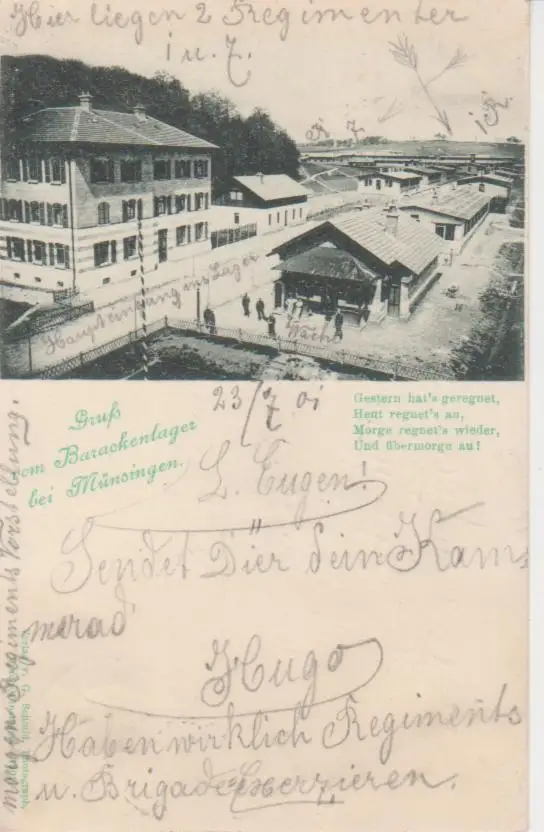 Hier liegen 2 Regimenter
1 u. 7.
Haupteingang ins Lager
Wache
23/7 01
Gruß
vom Barackenlager
bei Münsingen.
Gestern hat's geregnet,
Heut regnet's au,
Morge regnet's wieder,
Und übermorge au!
L. Eugen!
"
Sendet Dier dein Kam-
merad
Hugo
Haben wirklich Regiments
u. Brigade Exerzieren.
morgen Regiments Vorstellung.